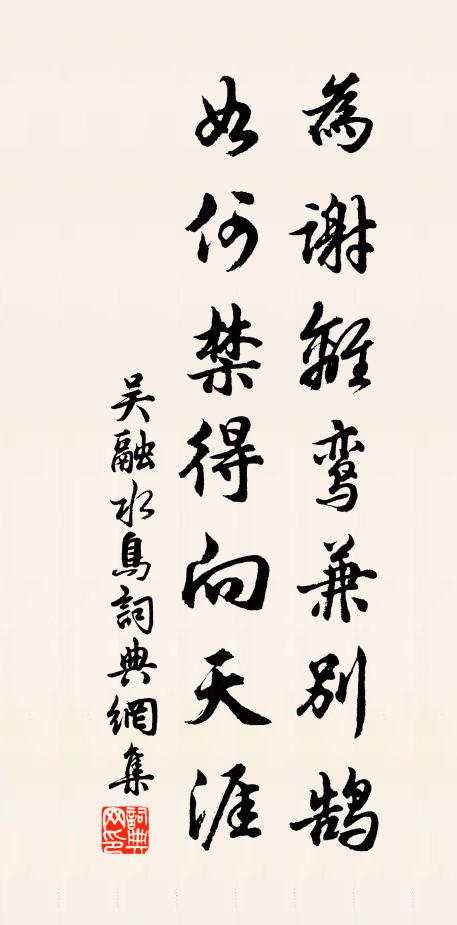 為謝離鸾兼別鹄
如何禁得向天涯
吴融水鳥詞典網集
詞典网印